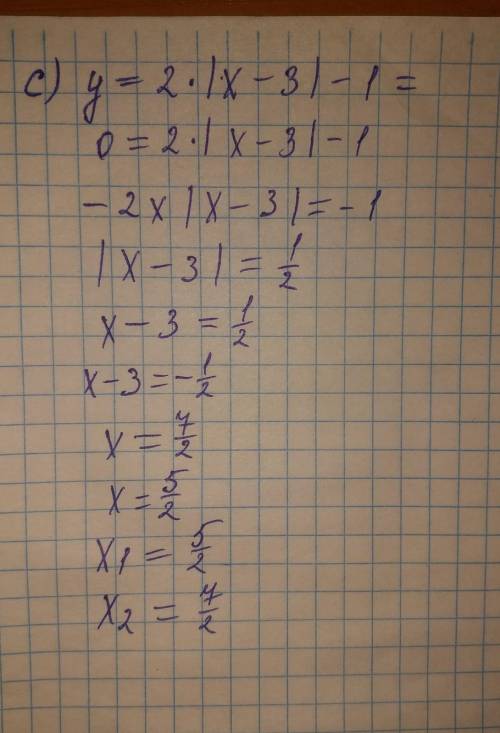 c) y = 2·|x − 3| − 1 =
0 = 2·|x − 3| − 1
− 2x|x − 3| = − 1
|x − 3| = 1/2
x − 3 = 1/2
x − 3 = − 1/2
x = 7/2
x = 5/2
x1 = 5/2
x2 = 7/2